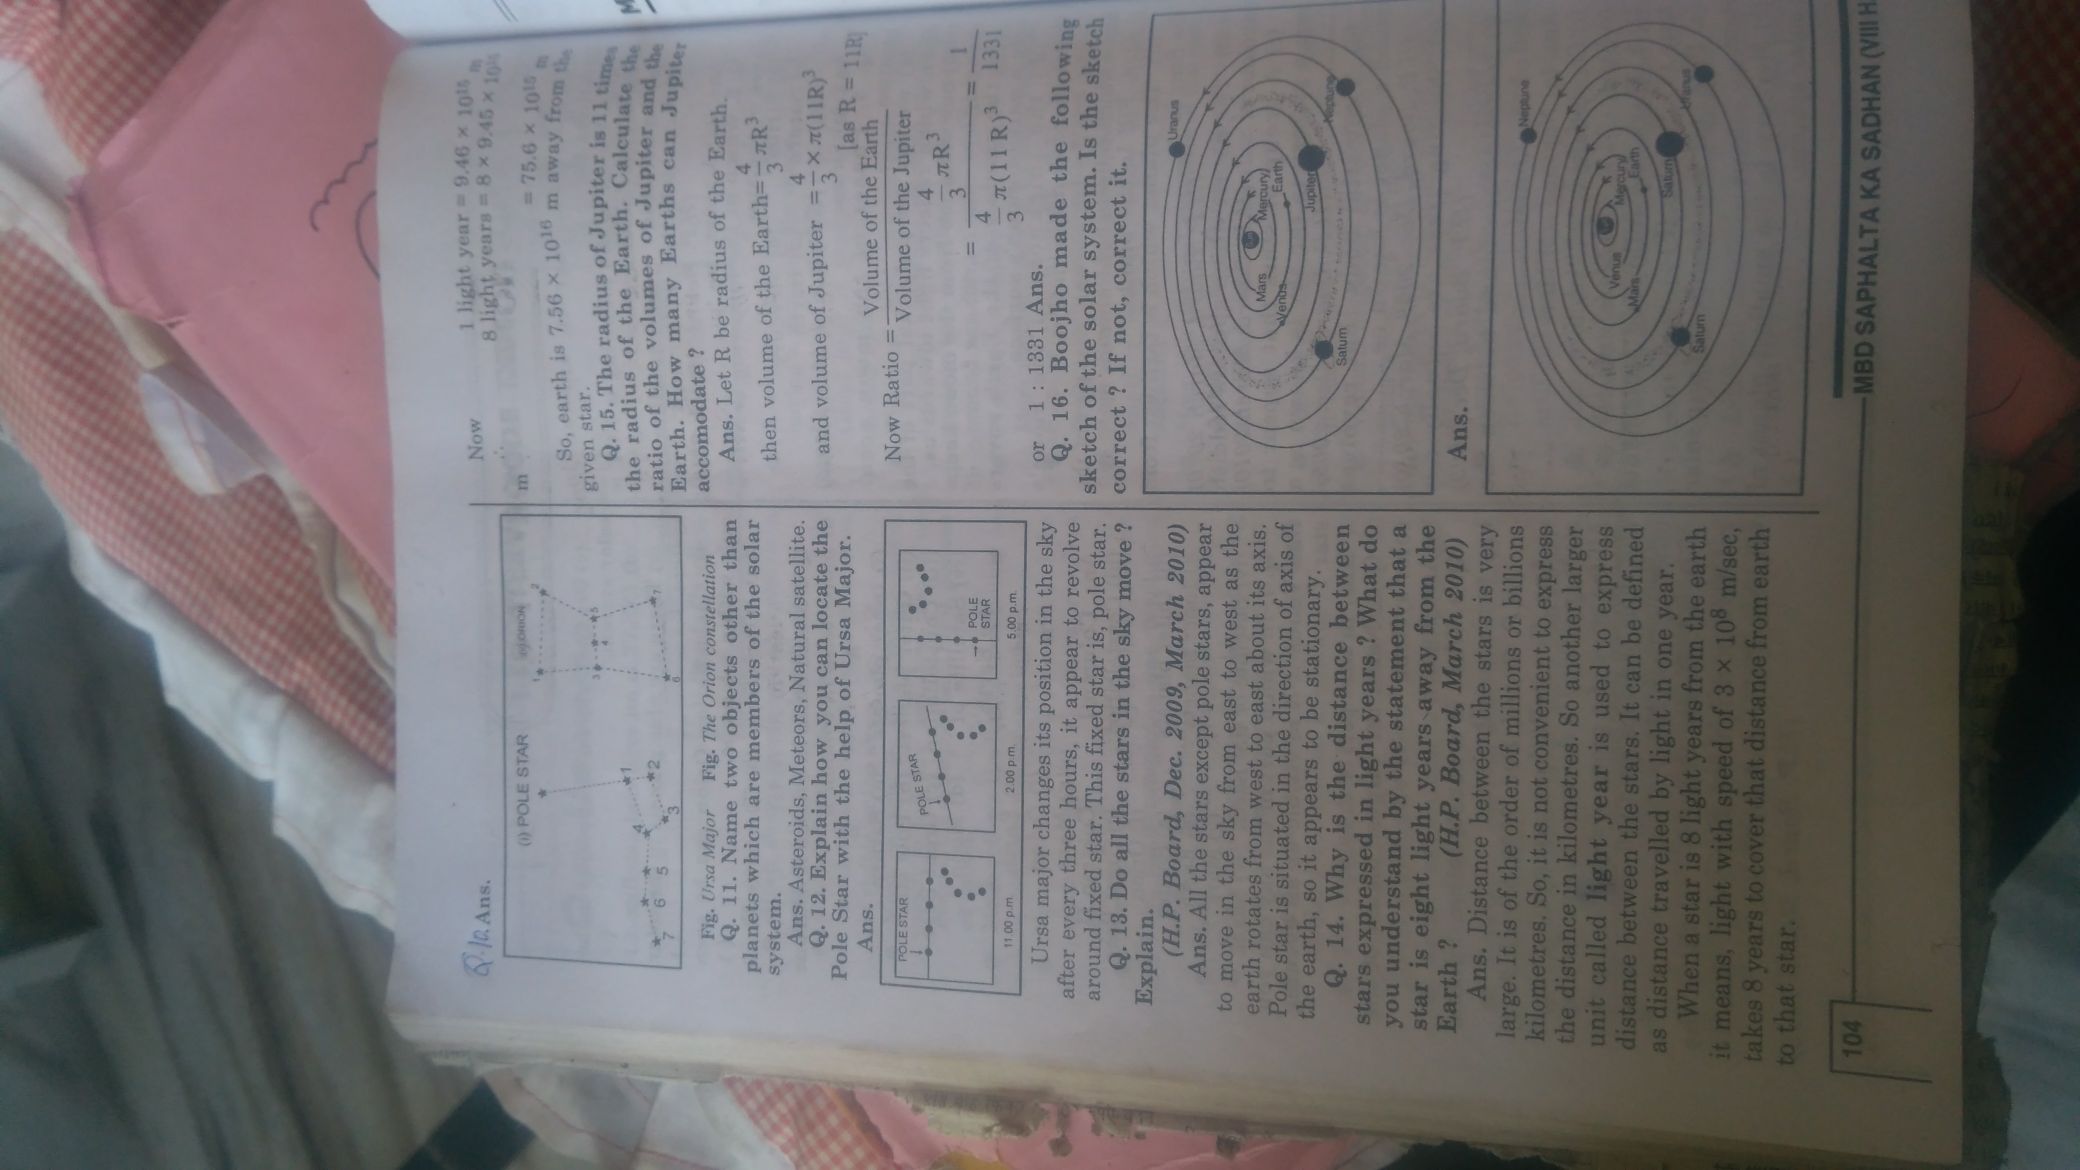 Q.10. Ans.
(i) POLE STAR
(ii) ORION
1
2
3
4
5
6
7
1
2
3
4
5
6
7
Fig. Ursa Major Fig. The Orion constellation
Q. 11. Name two objects other than
planets which are members of the solar
system.
Ans. Asteroids, Meteors, Natural satellite.
Q. 12. Explain how you can locate the
Pole Star with the help of Ursa Major.
Ans.
POLE STAR
11.00 p.m.
POLE STAR
2.00 p.m.
POLE
STAR
5.00 p.m.
Ursa major changes its position in the sky
after every three hours, it appear to revolve
around fixed star. This fixed star is, pole star.
Q. 13. Do all the stars in the sky move ?
Explain.
(H.P. Board, Dec. 2009, March 2010)
Ans. All the stars except pole stars, appear
to move in the sky from east to west as the
earth rotates from west to east about its axis.
Pole star is situated in the direction of axis of
the earth, so it appears to be stationary.
Q. 14. Why is the distance between
stars expressed in light years ? What do
you understand by the statement that a
star is eight light years away from the
Earth ? (H.P. Board, March 2010)
Ans. Distance between the stars is very
large. It is of the order of millions or billions
kilometres. So, it is not convenient to express
the distance in kilometres. So another larger
unit called light year is used to express
distance between the stars. It can be defined
as distance travelled by light in one year.
When a star is 8 light years from the earth
it means, light with speed of 3 × 10⁸ m/sec,
takes 8 years to cover that distance from earth
to that star.
Now 1 light year = 9.46 × 10¹⁵ m
∴ 8 light years = 8 × 9.45 × 10¹⁵
m = 75.6 × 10¹⁵ m
So, earth is 7.56 × 10¹⁶ m away from the
given star.
Q. 15. The radius of Jupiter is 11 times
the radius of the Earth. Calculate the
ratio of the volumes of Jupiter and the
Earth. How many Earths can Jupiter
accomodate ?
Ans. Let R be radius of the Earth.
then volume of the Earth = 4/3 πR³
and volume of Jupiter = 4/3 × π(11R)³
[as R = 11R]
Now Ratio = Volume of the Earth / Volume of the Jupiter
= 4/3 πR³ / 4/3 π(11 R)³ = 1/1331
or 1 : 1331 Ans.
Q. 16. Boojho made the following
sketch of the solar system. Is the sketch
correct ? If not, correct it.
Uranus
Neptune
Mercury
Earth
Jupiter
Mars
Venus
Saturn
Ans.
Neptune
Uranus
Mercury
Earth
Saturn
Venus
Mars
Saturn
104
MBD SAPHALTA KA SADHAN (VIII H